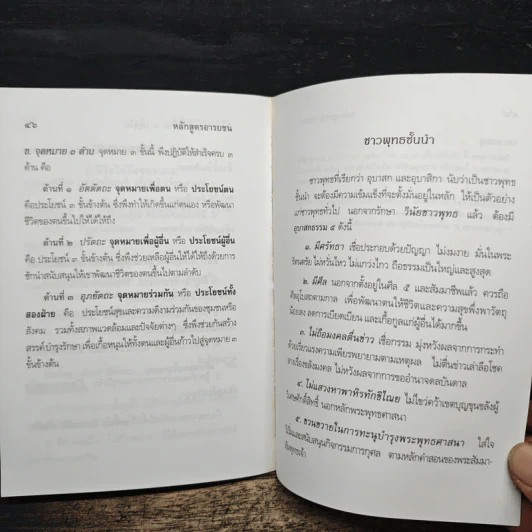 ๔๖ หลักสูตรอารยชน
ข. จุดหมาย ๓ ด้าน จุดหมาย ๓ ชั้นนี้ พึงปฏิบัติให้สำเร็จครบ ๓
ด้าน คือ
ด้านที่ ๑ อัตตัตถะ จุดหมายเพื่อตน หรือ ประโยชน์ตน
คือประโยชน์ ๓ ขั้นข้างต้น ซึ่งพึงทำให้เกิดขึ้นแก่ตนเอง หรือพัฒนา
ชีวิตของตนขึ้นไปให้ได้ให้ถึง
ด้านที่ ๒ ปรัตถะ จุดหมายเพื่อผู้อื่น หรือ ประโยชน์ผู้อื่น
คือประโยชน์ ๓ ขั้นข้างต้น ซึ่งพึงช่วยเหลือผู้อื่นให้ได้ให้ถึงด้วยการ
ชักนำสนับสนุนให้เขาพัฒนาชีวิตของตนขึ้นไปตามลำดับ
ด้านที่ ๓ อุภยัตถะ จุดหมายร่วมกัน หรือ ประโยชน์ทั้ง
สองฝ่าย คือ ประโยชน์สุขและความดีงามร่วมกันของชุมชนหรือ
สังคม รวมทั้งสภาพแวดล้อมและปัจจัยต่างๆ ซึ่งพึงช่วยกันสร้าง
สรรค์บำรุงรักษา เพื่อเกื้อหนุนให้ทั้งตนและผู้อื่นก้าวไปสู่จุดหมาย ๓
ขั้นข้างต้น
ชาวพุทธชั้นนำ
ชาวพุทธที่เรียกว่า อุบาสก และอุบาสิกา นับว่าเป็นชาวพุทธ
ชั้นนำ จะต้องมีความเข้มแข็งที่จะตั้งมั่นอยู่ในหลัก ให้เป็นตัวอย่าง
แก่ชาวพุทธทั่วไป นอกจากรักษา วินัยชาวพุทธ แล้ว ต้องมี
อุบาสกธรรม ๕ ดังนี้
๑. มีศรัทธา เชื่อประกอบด้วยปัญญา ไม่งมงาย มั่นในพระ
รัตนตรัย ไม่หวั่นไหว ไม่แกว่งไกว ถือธรรมเป็นใหญ่และสูงสุด
๒. มีศีล นอกจากตั้งอยู่ในศีล ๕ และสัมมาชีพแล้ว ควรถือ
ศีลอุโบสถตามกาล เพื่อพัฒนาตนให้ชีวิตและความสุขพึ่งพาวัตถุ
น้อยลง ลดการเบียดเบียน และเกื้อกูลแก่ผู้อื่นได้มากขึ้น
๓. ไม่ถือมงคลตื่นข่าว เชื่อกรรม มุ่งหวังผลจากการกระทำ
ด้วยเรี่ยวแรงความเพียรพยายามตามเหตุผล ไม่ตื่นข่าวเล่าลือโชค
ลางเรื่องขลังมงคล ไม่หวังผลจากการขออำนาจดลบันดาล
๔. ไม่แสวงหาพาหิรทักขิไณย ไม่ไขว่คว้าเขตบุญขุนขลังผู้
วิเศษศักดิ์สิทธิ์ นอกหลักพระพุทธศาสนา
๕. ขวนขวายในการทะนุบำรุงพระพุทธศาสนา ใส่ใจ
ริเริ่มและสนับสนุนกิจกรรมการกุศล ตามหลักคำสอนของพระสัมมา-
สัมพุทธเจ้า